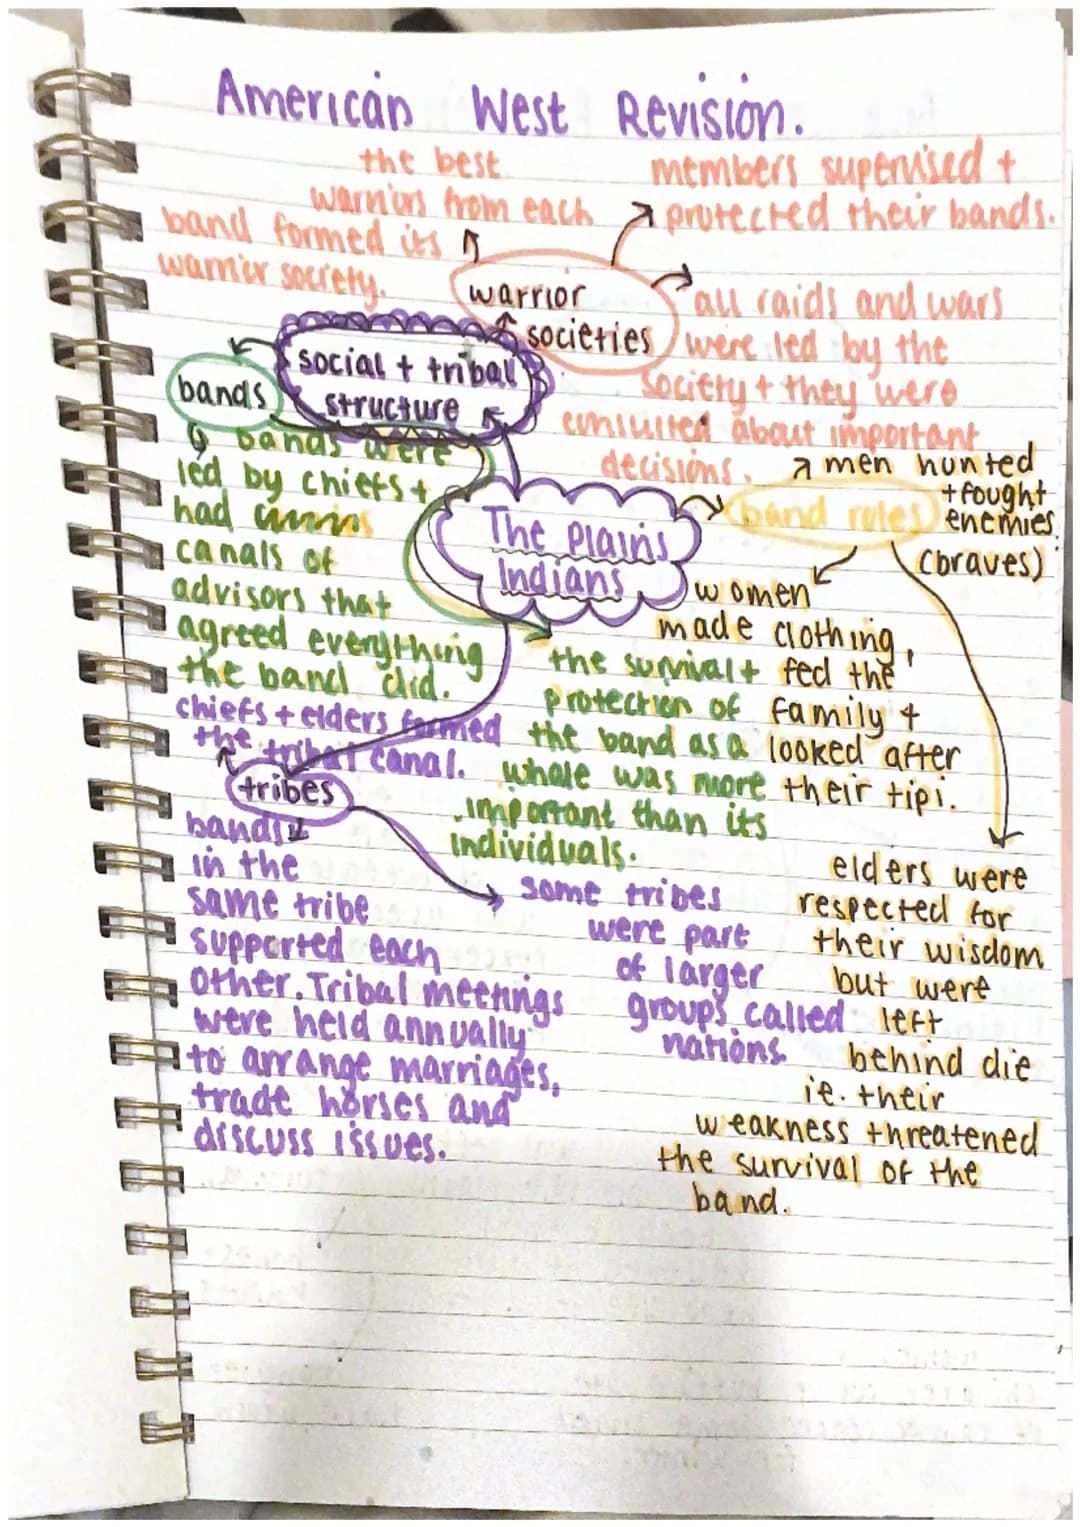 American West Revision.
the best
warriors from each
band formed its
warrior society.
members supervised +
protected their bands.
warrior
societies
all raids and wars
were led by the
society + they were
consulted about important
decisions.
social + tribal
structure
bands
bands were
led by chiefs +
had
canals of
advisors that
agreed everything
the band did.
The Plains
Indians
band roles
men hunted
+ fought
enemies.
(braves)
women
made clothing,
fed the
family +
looked after
their tipi.
the survival +
protection of
the band as a
whole was more
important than its
individuals.
chiefs + elders formed
the tribal canal.
tribes
bands
in the
same tribe
supported each
other. Tribal meetings
were held annually
to arrange marriages,
trade horses and
discuss issues.
some tribes
were part
of larger
groups called
nations.
elders were
respected for
their wisdom
but were
left
behind die
ie. their
weakness threatened
the survival of the
band.